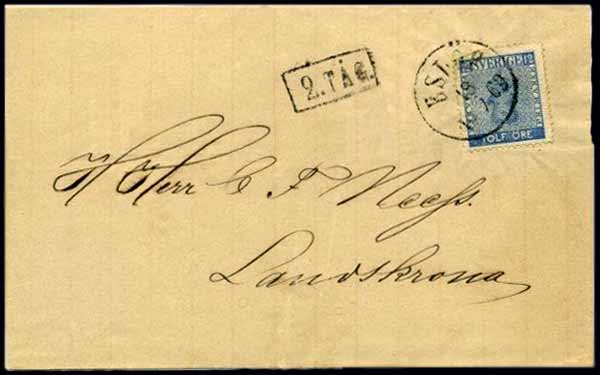 2. TÅG.
ESLÖF
SVERIGE 12
TOLF ÖRE
H Herr C F Neess.
Landskrona